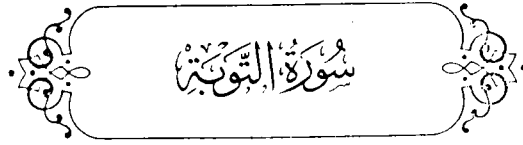 سُورَةُ التَّوبَةِ